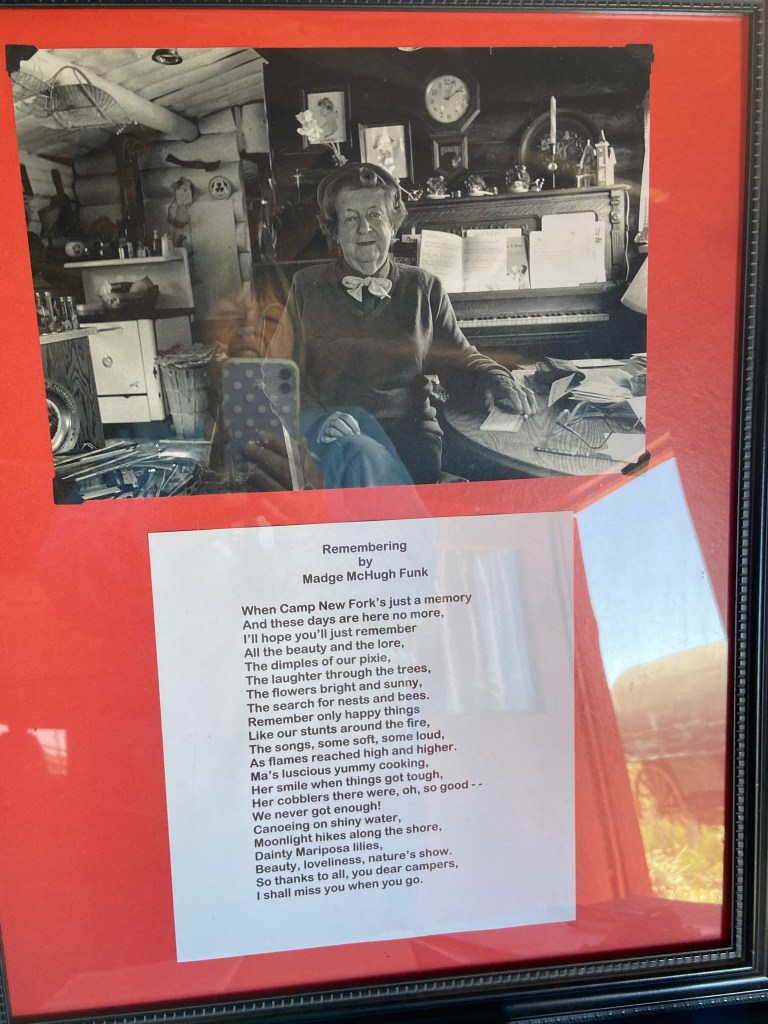 Remembering
by
Madge McHugh Funk
When Camp New Fork's just a memory
And these days are here no more,
I'll hope you'll just remember
All the beauty and the lore,
The dimples of our pixie,
The laughter through the trees,
The flowers bright and sunny,
The search for nests and bees.
Remember only happy things
Like our stunts around the fire,
The songs, some soft, some loud,
As flames reached high and higher.
Ma's luscious yummy cooking,
Her smile when things got tough,
Her cobblers there were, oh, so good - -
We never got enough!
Canoeing on shiny water,
Moonlight hikes along the shore,
Dainty Mariposa lilies,
Beauty, loveliness, nature's show.
So thanks to all, you dear campers,
I shall miss you when you go.